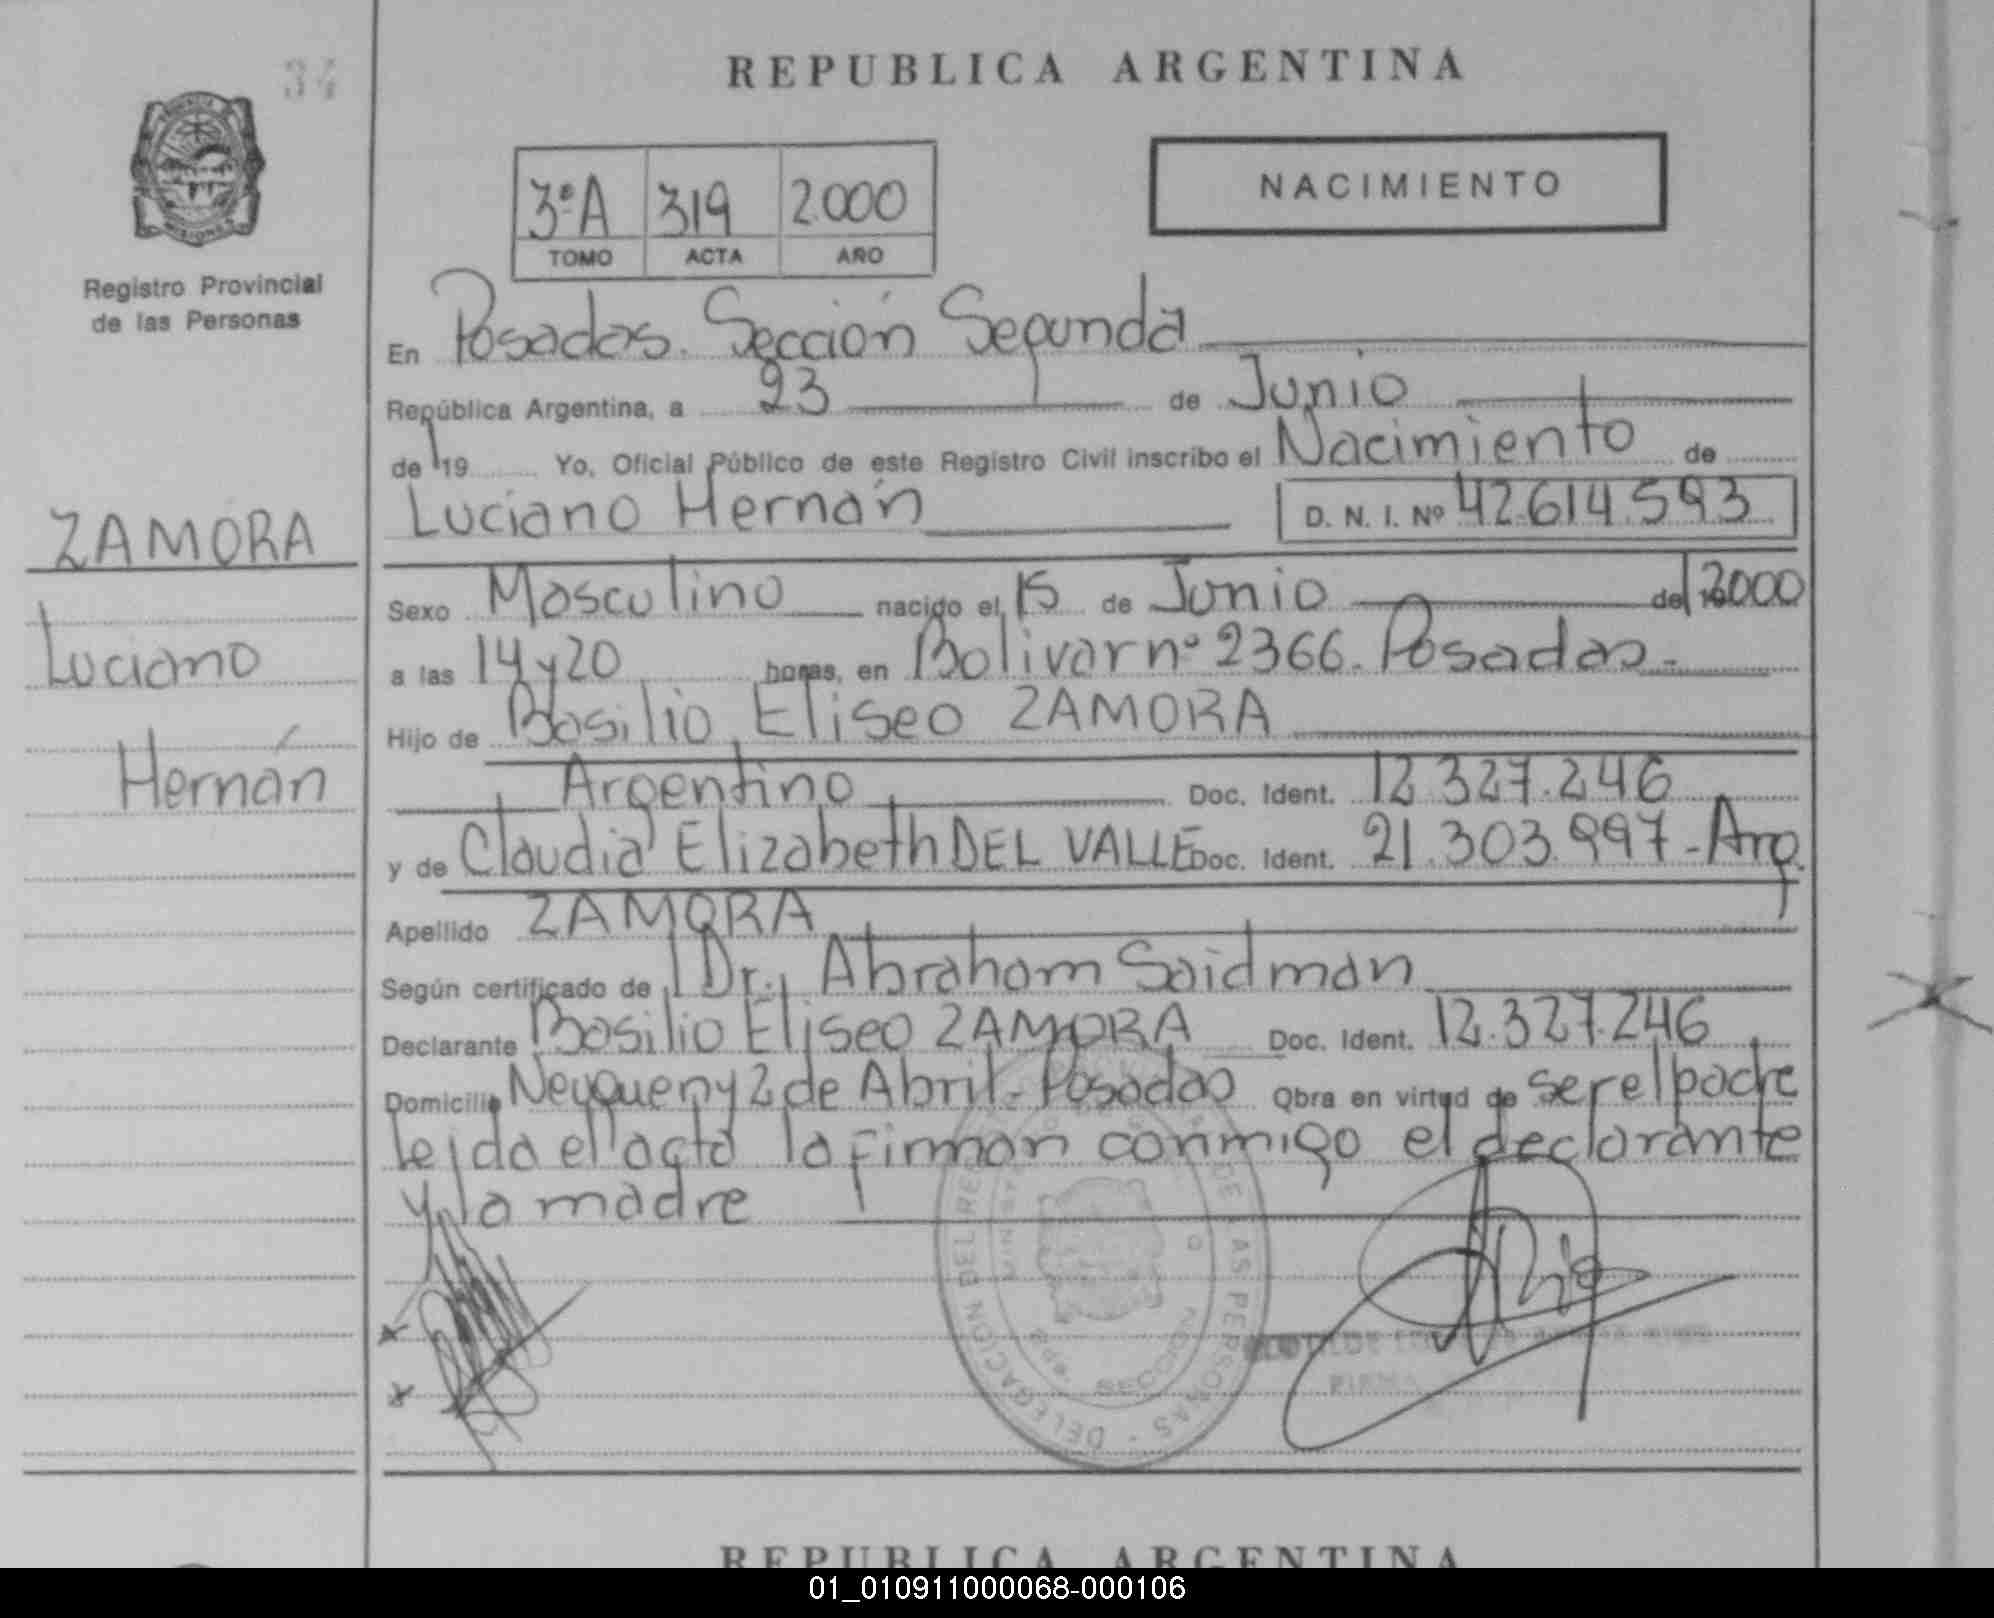 34
REPUBLICA ARGENTINA
NACIMIENTO
3ºA 319 2.000
TOMO ACTA AÑO
Registro Provincial
de las Personas
En Posadas. Sección Segunda
República Argentina, a 23 de Junio
de 19 Yo, Oficial Público de este Registro Civil inscribo el Nacimiento de
Luciano Hernán D. N. I. Nº 42.614.593
ZAMORA
Luciano
Hernán
Sexo Masculino nacido el 15 de Junio de 2000
a las 14 y 20 horas, en Bolivar nº 2366. Posadas.-
Hijo de Basilio Eliseo ZAMORA
Argentino Doc. Ident. 12.327.246
y de Claudia Elizabeth DEL VALLE Doc. Ident. 21.303.997 - Arg.
Apellido ZAMORA
Según certificado de Dr. Abraham Saidman
Declarante Basilio Eliseo ZAMORA Doc. Ident. 12.327.246
Domicilio Neuquen y 2 de Abril - Posadas Obra en virtud de ser el padre
leida el acta la firman conmigo el declarante
y la madre
DELEGACION DEL DE LAS PERSONAS
SECCION
FIRMA
REPUBLICA ARGENTINA
01_010911000068-000106